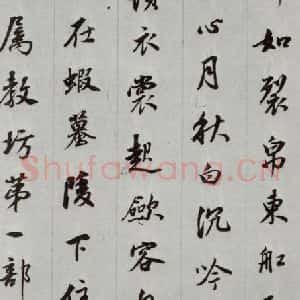 如裂帛東船
心月秋白沉吟
衣裳起斂容
在蝦蟇陵下住
属教坊第一部
Shufawang.CN